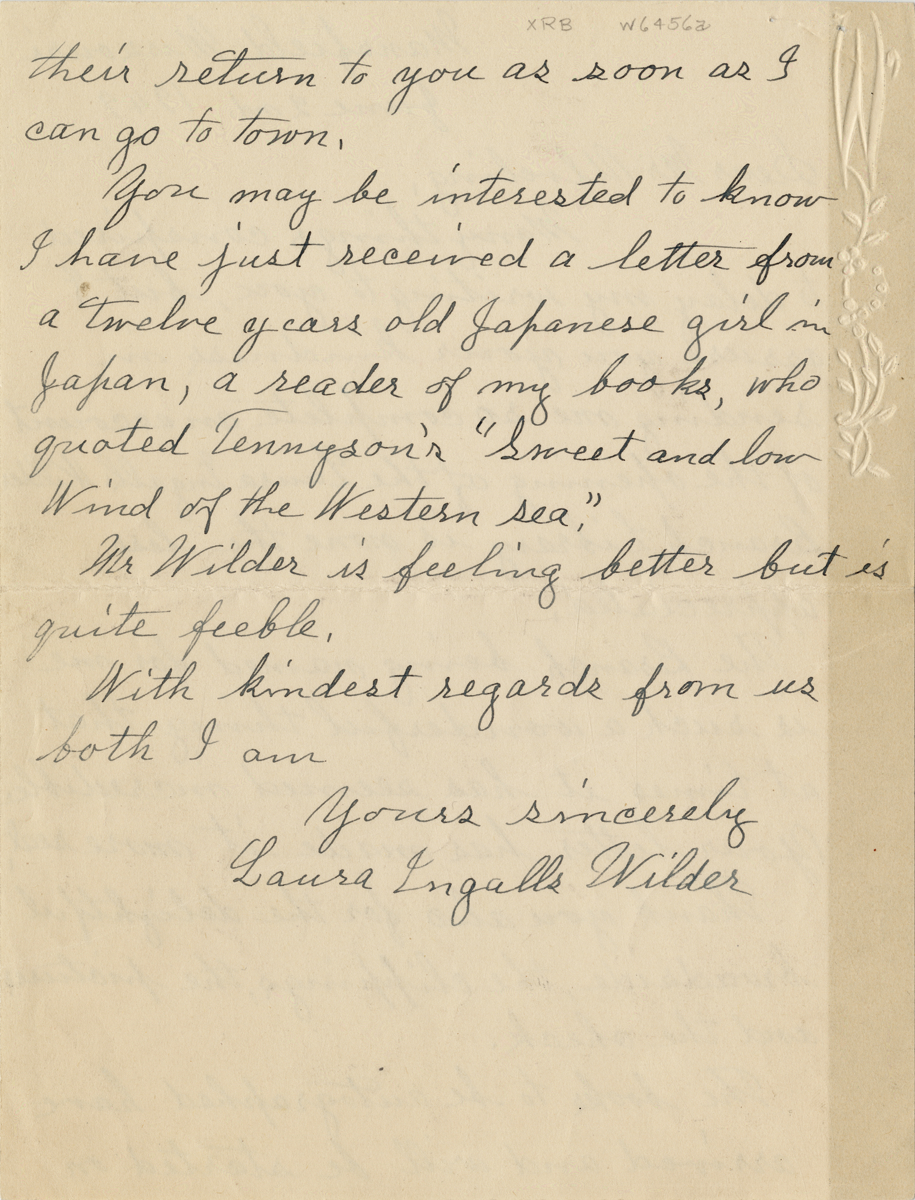 XRB W6456z
their return to you as soon as I
can go to town.
You may be interested to know
I have just received a letter from
a twelve years old Japanese girl in
Japan, a reader of my books, who
quoted Tennyson's "Sweet and low
Wind of the Western sea."
Mr Wilder is feeling better but is
quite feeble.
With kindest regards from us
both I am
Yours sincerely
Laura Ingalls Wilder